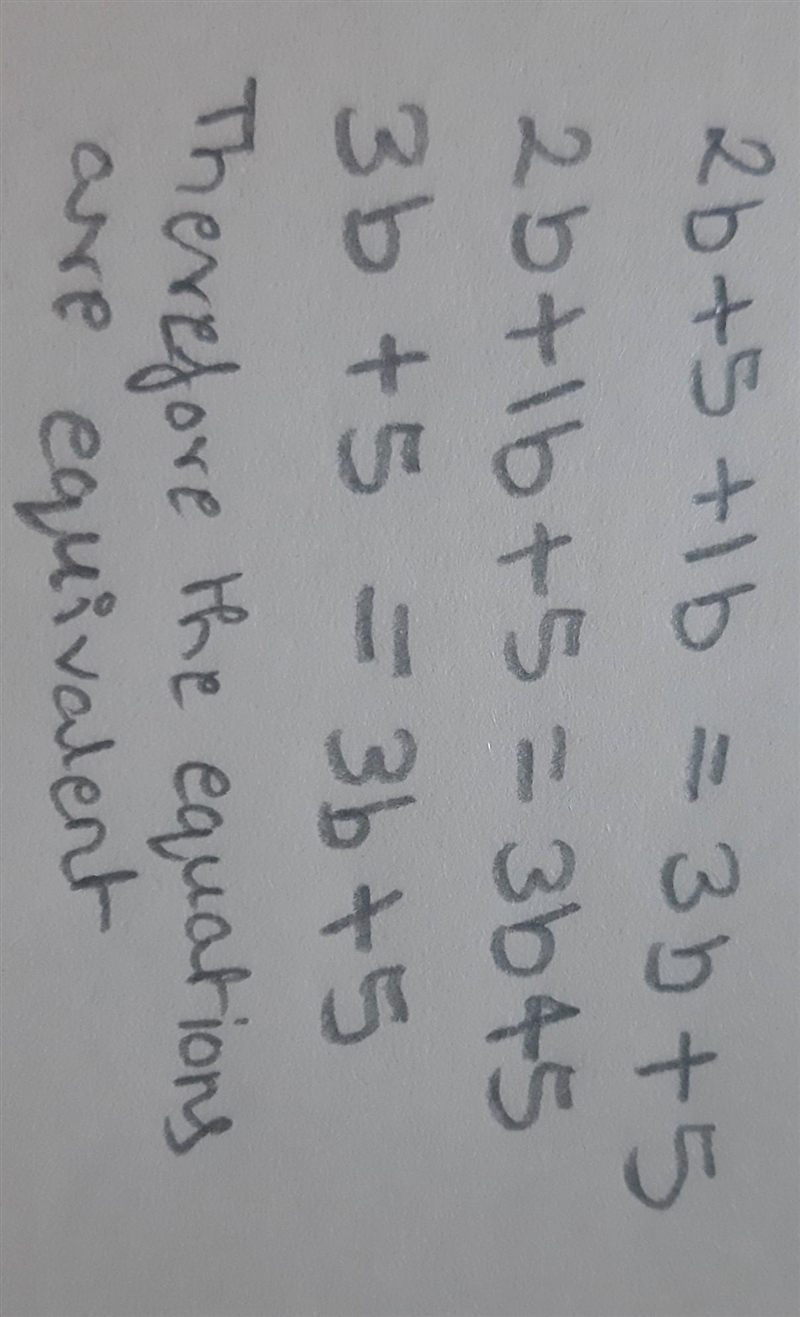 2b+5+1b = 3b+5
2b+1b+5 = 3b+5
3b +5 = 3b+5
Therefore the equations
are equivalent